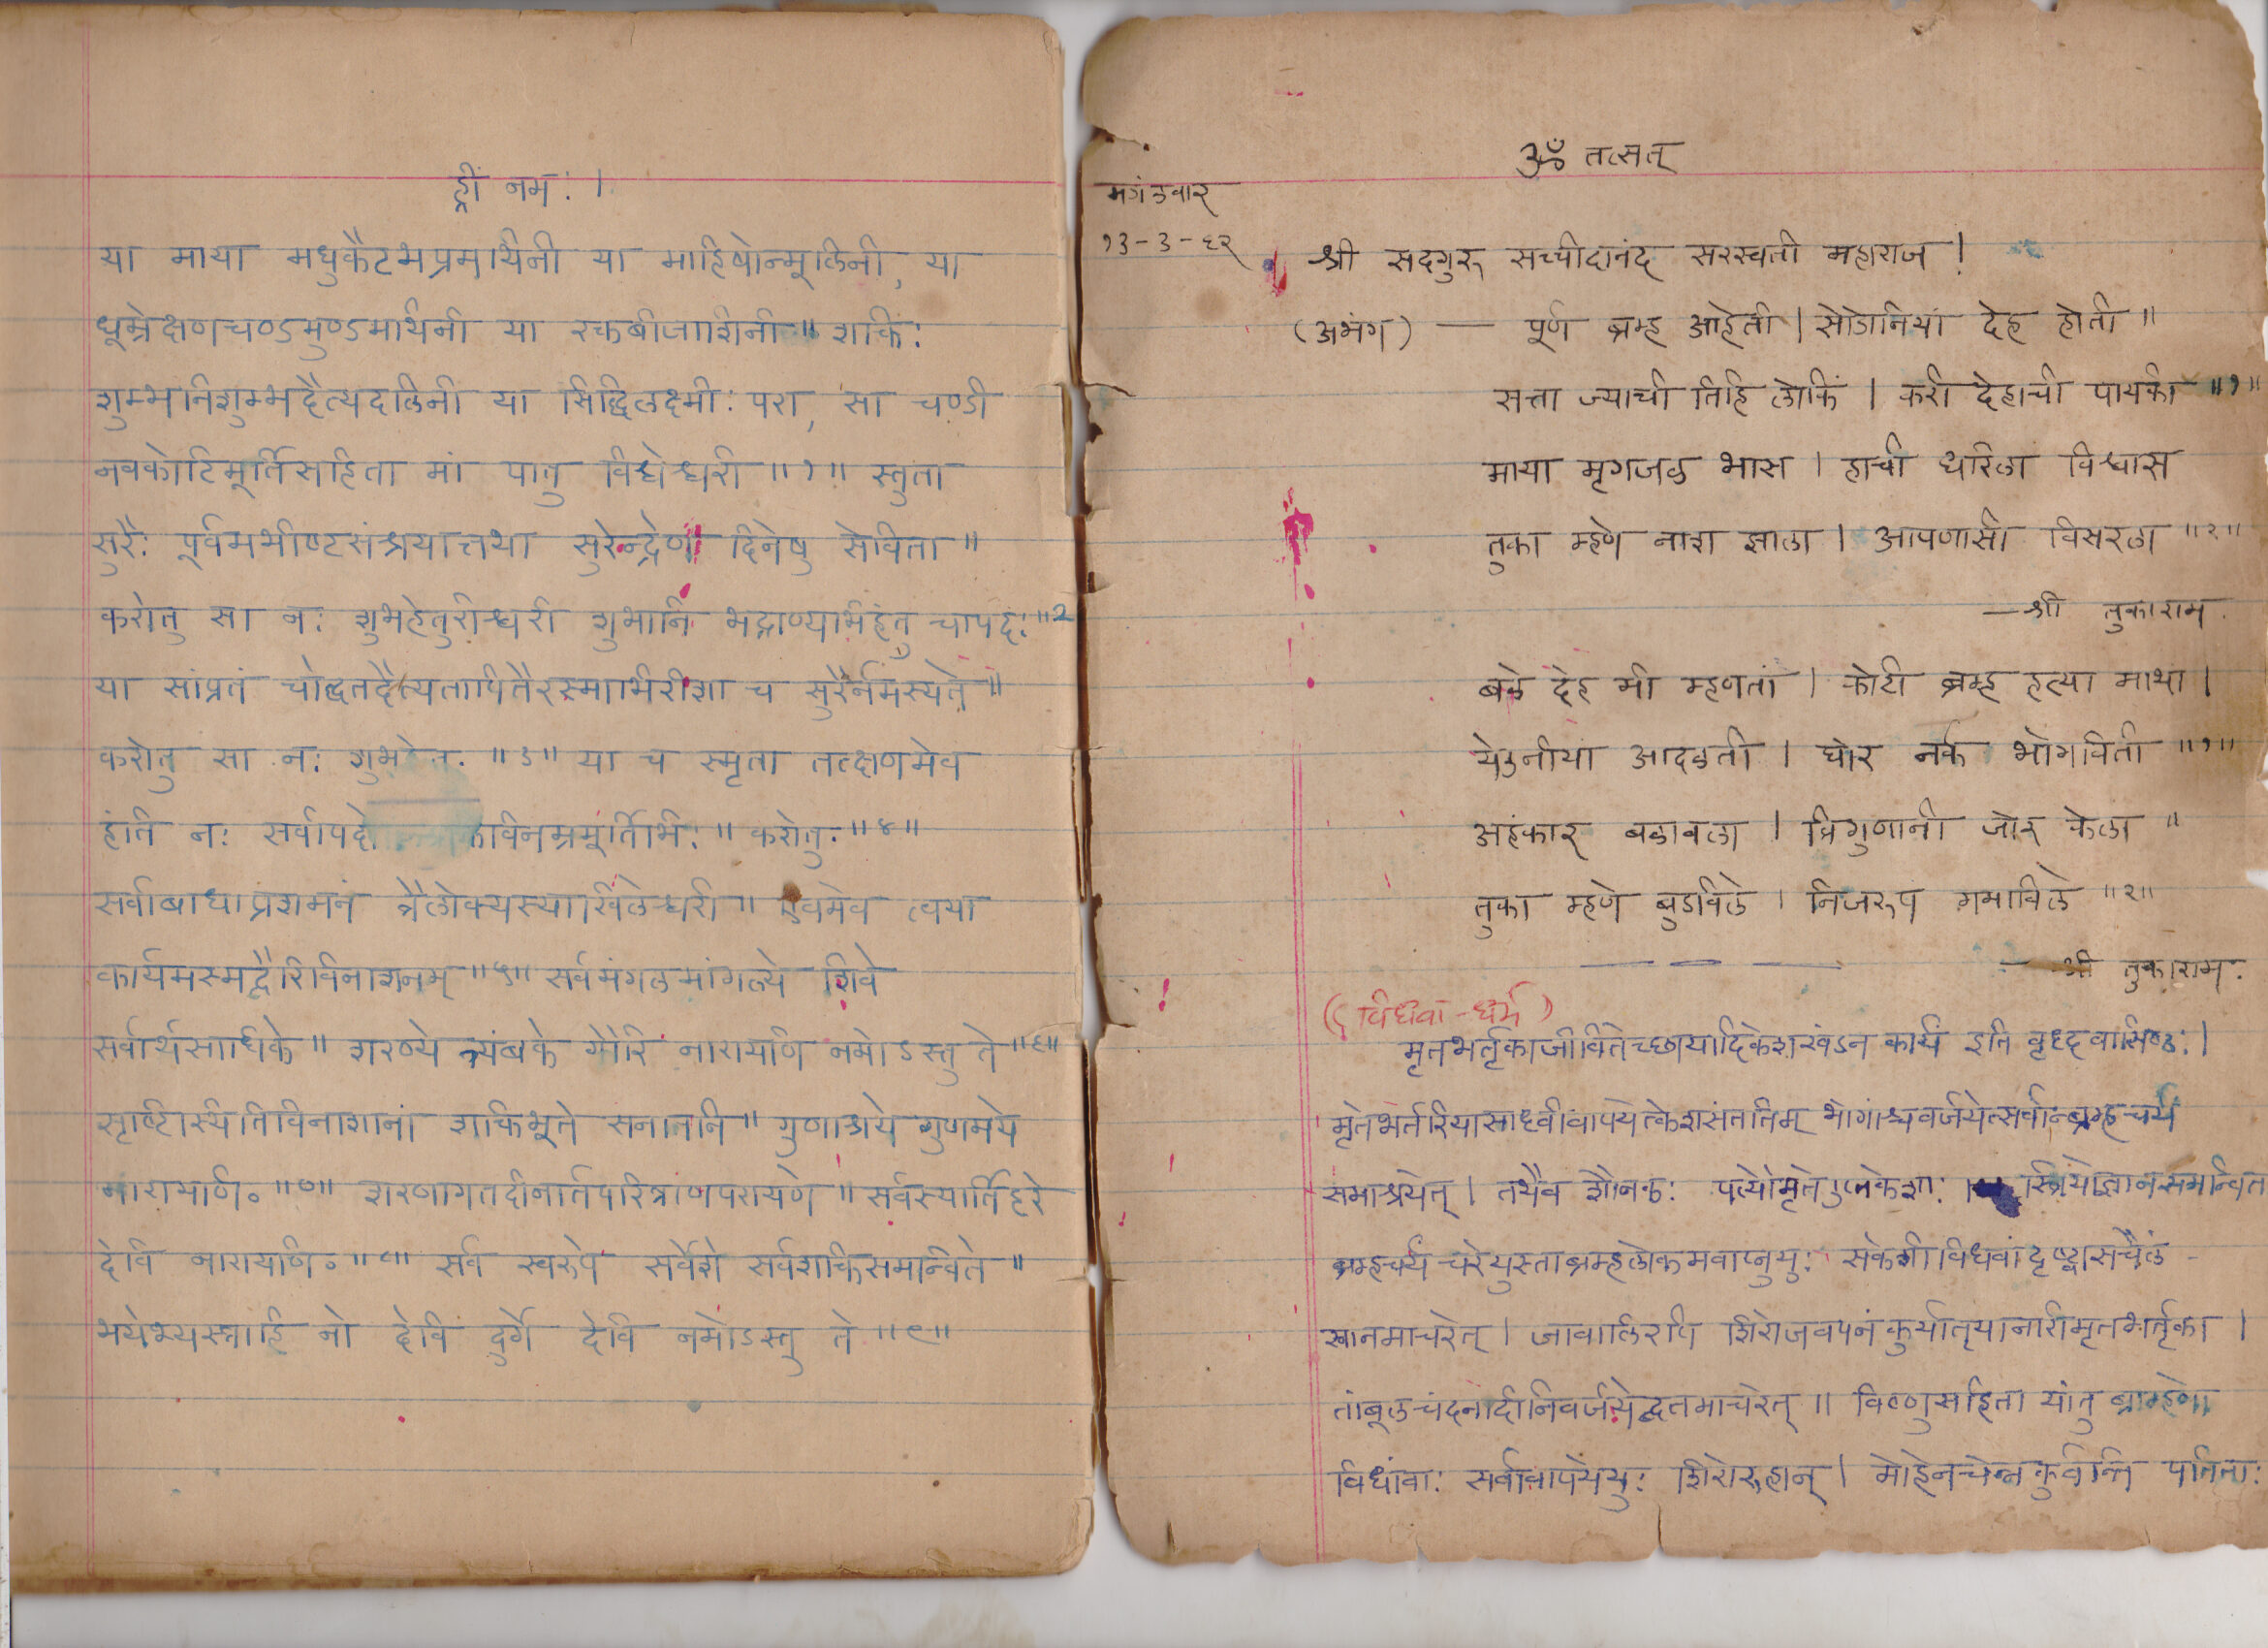 ह्रीं नमः ।
या माया मधुकैटभप्रमथिनी या माहिषोन्मूलिनी, या
धूम्रेक्षणचण्डमुण्डमथिनी या रक्तबीजाशिनी ॥ शक्तिः
शुम्भनिशुम्भदैत्यदलिनी या सिद्धिलक्ष्मीः परा, सा चण्डी
नवकोटिमूर्तिसहिता मां पातु विश्वेश्वरी ॥१॥ स्तुता
सुरैः पूर्वमभीष्टसंश्रयात्तथा सुरेन्द्रेण दिनेषु सेविता ॥
करोतु सा नः शुभहेतुरीश्वरी शुभानि भद्राण्यभिहंतु चापदः ॥२
या सांप्रतं चोद्धतदैत्यतापितैरस्माभिरीशा च सुरैर्नमस्यते ॥
करोतु सा नः शुभ ॥३॥ या च स्मृता तत्क्षणमेव
हंति नः सर्वापदो विनम्रमूर्तिभिः ॥ करोतु. ॥४॥
सर्वाबाधाप्रशमनं त्रैलोक्यस्याखिलेश्वरी ॥ एवमेव त्वया
कार्यमस्मद्वैरिविनाशनम् ॥५॥ सर्वमंगलमांगल्ये शिवे
सर्वार्थसाधिके ॥ शरण्ये त्र्यंबके गौरि नारायणि नमोऽस्तु ते ॥६॥
सृष्टिस्थितिविनाशानां शक्तिभूते सनातनि ॥ गुणाश्रये गुणमये
नारायणि० ॥७॥ शरणागतदीनार्तपरित्राणपरायणे ॥ सर्वस्यार्तिहरे
देवि नारायणि० ॥८॥ सर्व स्वरूपे सर्वेशे सर्वशक्तिसमन्विते ॥
भयेभ्यस्त्राहि नो देवि दुर्गे देवि नमोऽस्तु ते ॥९॥
ॐ तत्सत्
मगंळवार
१३-३-६२
श्री सदगुरू सच्चीदानंद सरस्वती महाराज !
(अभंग) — पूर्ण ब्रम्ह आहेती | सोडोनियां देह होती ॥
सत्ता ज्याची तिहि लोकिं | करी देहाची पायकी ॥१॥
माया मृगजळ भास | हाची धरिला विश्वास
तुका म्हणे नाश झाला | आपणासी विसरला ॥२॥
— श्री तुकाराम.
बळे देह मी म्हणतां | कोटी ब्रम्ह हत्या माथा |
येउनीया आदळती | घोर नर्क भोगविती ॥१॥
अहंकार बळावला | त्रिगुणानी जोर केला ॥
तुका म्हणे बुडविले | निजरूप गमाविले ॥२॥
— श्री तुकाराम.
(विधवा-धर्म)
मृतभर्तृकाजीवितेच्छायादिकेशखंडन कार्यं इति वृध्द वासिष्ठः |
मृतेभर्तरियासाध्वीवापयेत्केशसंततिम् भोगांश्चवर्जयेत्सर्वान्ब्रम्हचर्यं
समाश्रयेत् | तथैव शौनकः पत्योमृते केशाः | स्त्रियोज्ञानसमन्वित
ब्रम्हचर्यं चरेयुस्ताब्रम्हलोकमवाप्नुयुः सकेशीविधवांदृष्ट्वासचैलं-
स्नानमाचरेत् | जाबालिरपि शिरोजवपनं कुर्यात्यानारीमृतभर्तृका |
तांबूलचंदनादीनिवर्जयेद्व्रतमाचरेत् ॥ विष्णुसंहिता यांतु ब्राम्हणो
विधवाः सर्वावापयेयुः शिरोरुहान् | मोहेनचेन्नकुर्वन्ति पतिताः